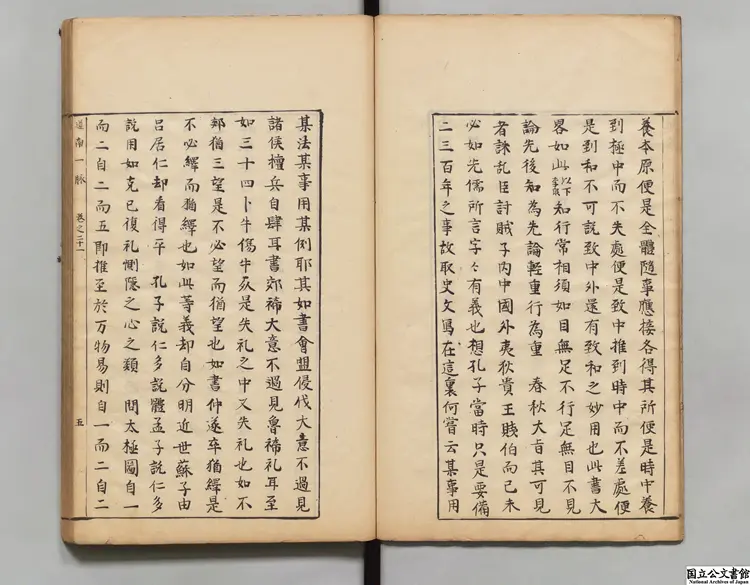 養本原便是全體隨事應接各得其所便是時中養
到極中而不失處便是致中推到時中而不差處便
是到和不可說致中外還有致和之妙用也此書大
畧如此以下知行常相須如目無足不行足無目不見
論先後知為先論輕重行為重　春秋大旨其可見
者誅乱臣討賊子内中國外夷狄貴王賤伯而已未
必如先儒所言字々有義也想孔子當時只是要備
二三百年之事故取史文寫在這裏何嘗云某事用
某法某事用某例耶其如書會盟侵伐大意不過見
諸侯檀兵自肆耳書郊禘大意不過見魯禘礼耳至
如三十四卜牛傷牛死是失礼之中又失礼也如不
郊猶三望是不必望而猶望也如書仲遂卒猶繹是
不必繹而猶繹也如此等義却自分明近世蘇子由
呂居仁却看得平　孔子說仁多說體孟子說仁多
說用如克己復礼惻隱之心之類　問太極圖自一
而二自二而五即推至於万物易則自一而二自二
道南一脉　卷之二十一　五
国立公文書館
National Archives of Japan